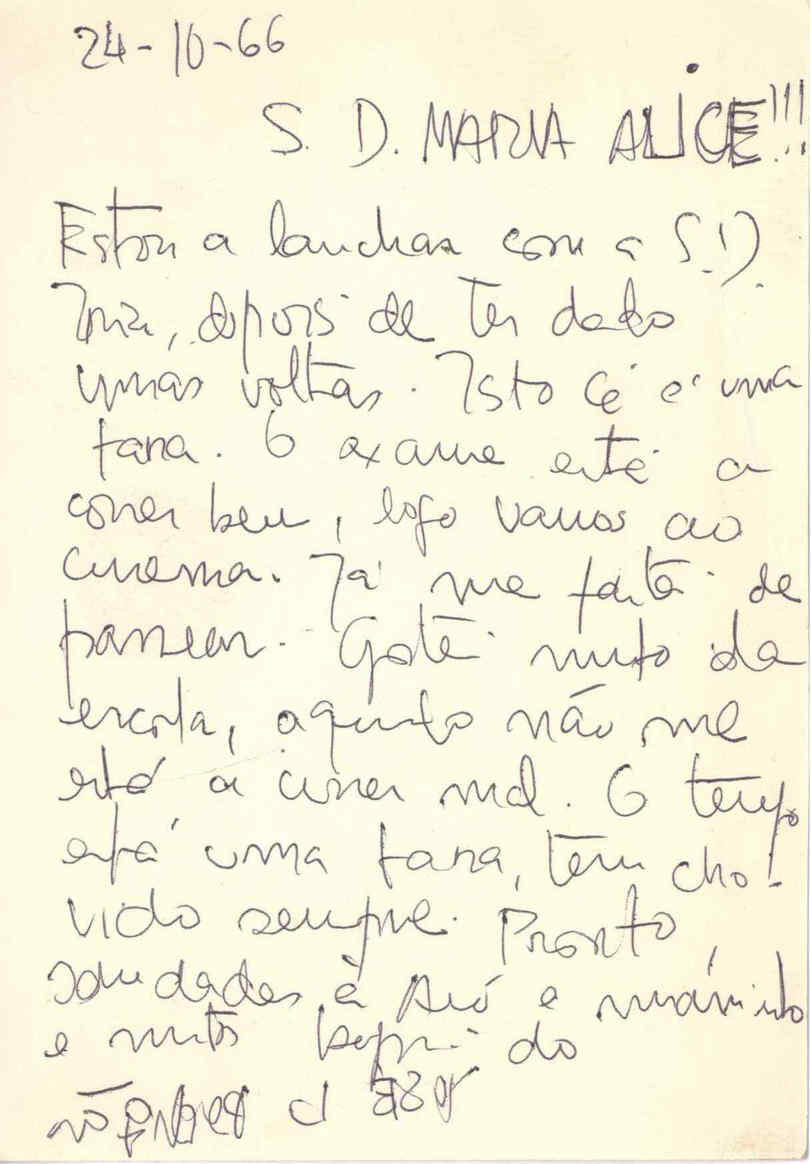 24-10-66
S. D. MARIA ALICE!!!
Estou a lanchar com a S. D.
depois de ter dado
umas voltas. Isto cá é uma
tara. O exame está a
correr bem, logo vamos ao
cinema. Já me farte de
passear. Gosté muto da
escola, aquilo não me
está a correr mal. O tempo
está uma tara, tem cho-
vido sempre. Pronto,
saudades à Avó e
e mutos do